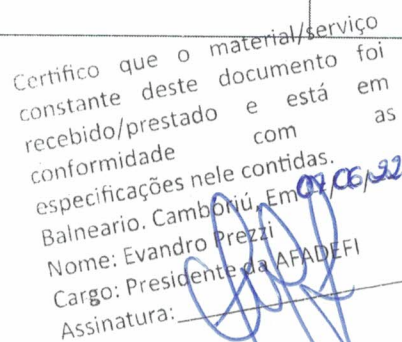 Certifico que o material/serviço
constante deste documento foi
recebido/prestado e está em
conformidade com as
especificações nele contidas.
Balneario. Camboriú, Em 07/06/22
Nome: Evandro Prezzi
Cargo: Presidente da AFADEFI
Assinatura: